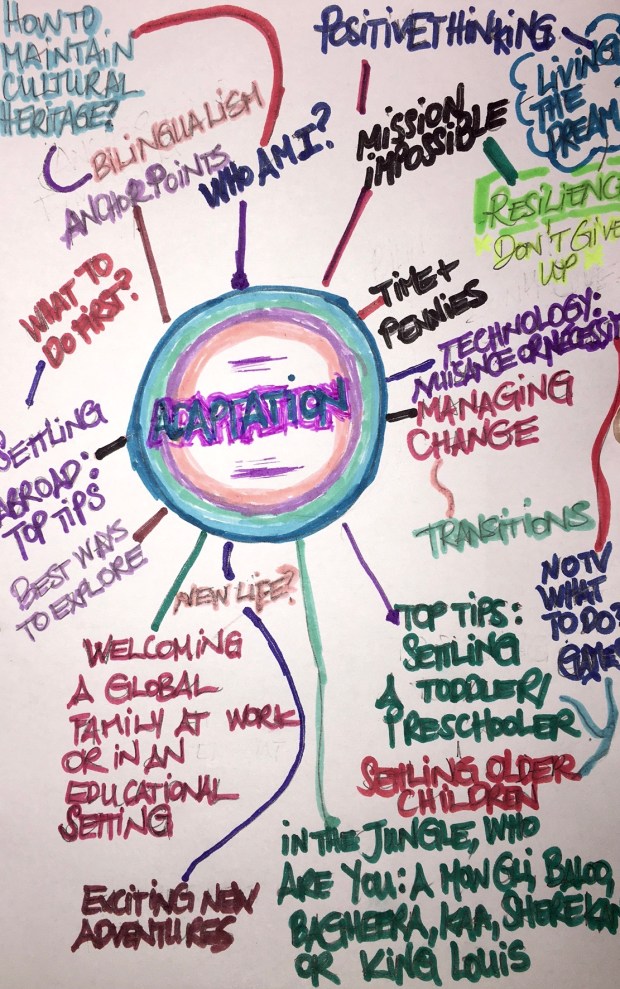 HOW TO
MAINTAIN
CULTURAL
HERITAGE?
POSITIVE THINKING
LIVING
THE
DREAM
BILINGUALISM
ANCHOR POINTS
WHO AM I?
MISSION
IMPOSSIBLE
RESILIENC
"DON'T GIVE
UP"
WHAT TO
DO FIRST?
TIME+
PENNIES
TECHNOLOGY:
NUISANCE OR NECESSIT
ADAPTATION
MANAGING
CHANGE
SETTLING
ABROAD:
TOP TIPS
TRANSITIONS
BEST WAYS
TO EXPLORE
NEW LIFE?
NO TV
WHAT
TO DO?
GAMES
WELCOMING
A GLOBAL
FAMILY AT WORK
OR IN AN
EDUCATIONAL
SETTING
TOP TIPS:
SETTLING
A TODDLER/
PRESCHOOLER
SETTLING OLDER
CHILDREN
IN THE JUNGLE, WHO
ARE YOU: A MOWGLI, BALOO,
BAGHEERA, KAA, SHEREKAN
OR KING LOUIS
EXCITING NEW
ADVENTURES